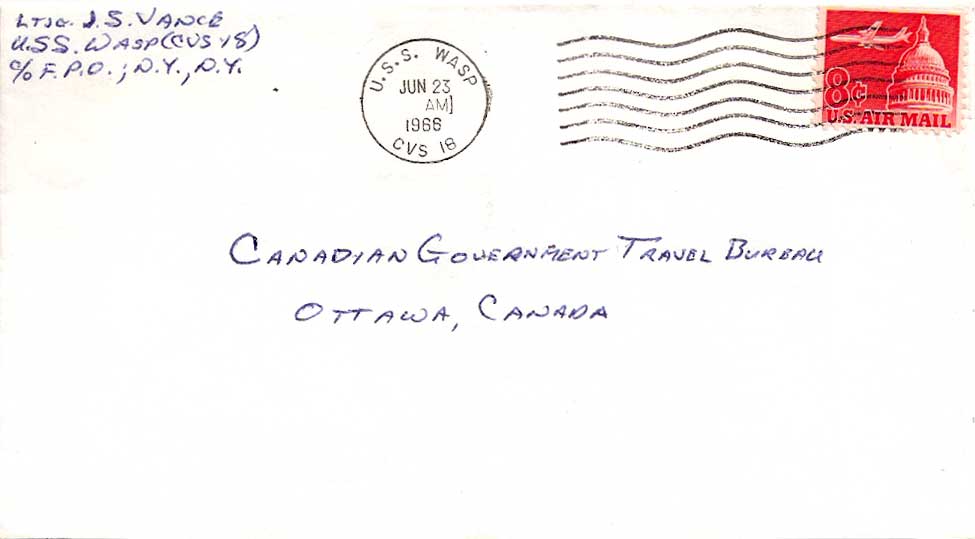 LTJG. J.S. VANCE
U.S.S. WASP (CVS 18)
c/o F.P.O.; N.Y., N.Y.
U.S.S. WASP
JUN 23
AM
1966
CVS 18
8¢
U.S. AIR MAIL
CANADIAN GOVERNMENT TRAVEL BUREAU
OTTAWA, CANADA